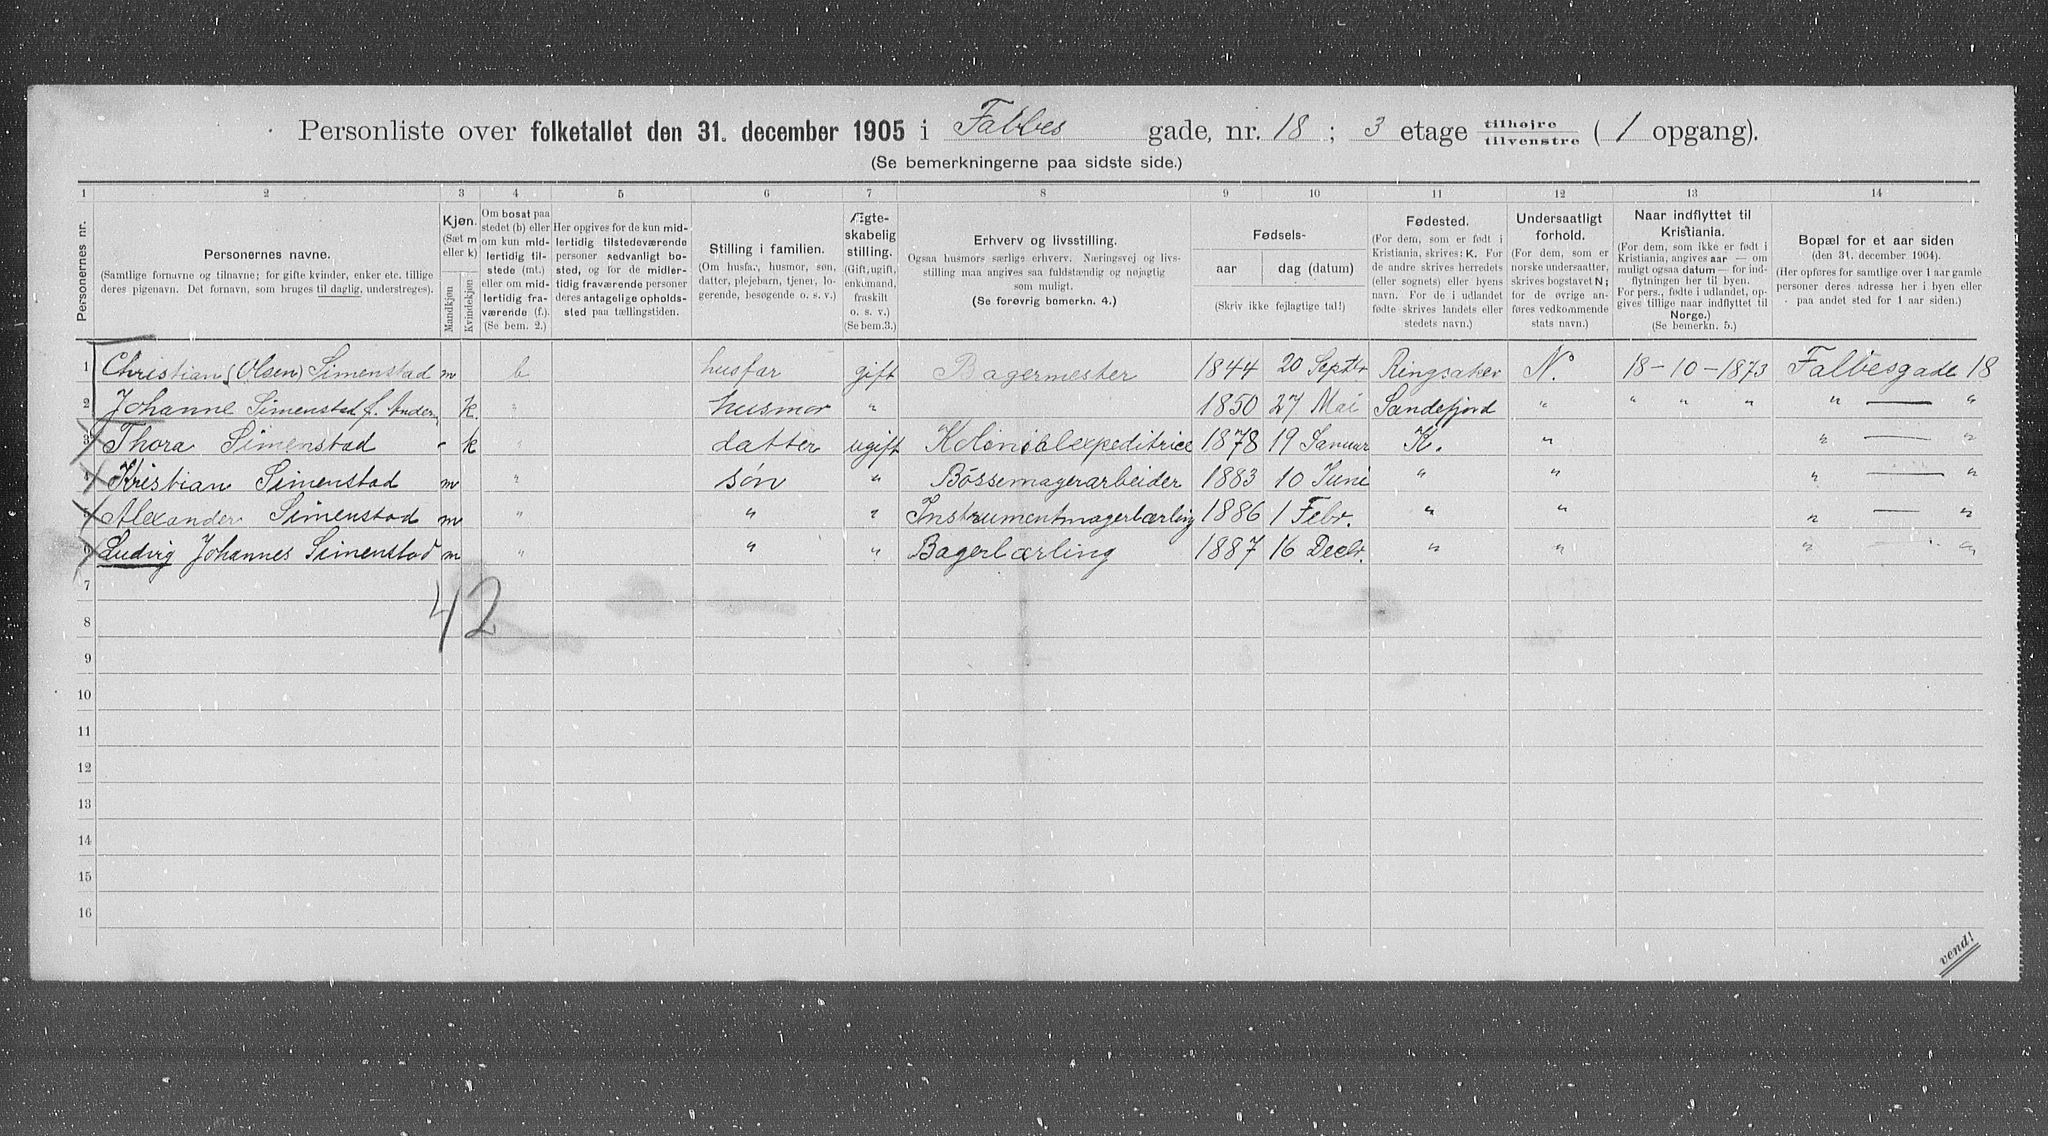 Personliste over folketallet den 31. december 1905 i Falbes gade, nr. 18 ; 3 etage tilhøjre tilvenstre ( 1 opgang).
(Se bemerkningerne paa sidste side.)
1 2 3 4 5 6 7 8 9 10 11 12 13 14
Personernes nr.
Personernes navne.
(Samtlige fornavne og tilnavne; for gifte kvinder, enker etc. tillige deres pigenavn. Det fornavn, som bruges til daglig, understreges).
Kjøn.
(Sæt m eller k)
Mandkjøn
Kvindekjøn
Om bosat paa stedet (b) eller om kun midlertidig tilstede (mt.) eller om midlertidig fraværende (f.). (Se bem. 2.)
Her opgives for de kun midlertidig tilstedeværende personer sedvanligt bosted, og for de midlertidig fraværende personer deres antagelige opholdssted paa tællingstiden.
Stilling i familien.
(Om husfar, husmor, søn, datter, plejebarn, tjener, logerende, besøgende o. s. v.)
Ægteskabelig stilling.
(Gift, ugift, enkemand, fraskilt o. s. v.) (Se bem. 3.)
Erhverv og livsstilling.
Ogsaa husmors særlige erhverv. Næringsvej og livsstilling maa angives saa fuldstændig og nøjagtig som muligt.
(Se forøvrig bemerkn. 4.)
Fødsels-
aar dag (datum)
(Skriv ikke fejlagtige tal!)
Fødested.
(For dem, som er født i Kristiania, skrives: K. For de andre skrives herredets (eller sognets) eller byens navn. For de i udlandet fødte skrives landets eller stedets navn.)
Undersaatligt forhold.
(For dem, som er norske undersaatter, skrives bogstavet N; for de øvrige anføres vedkommende stats navn.)
Naar indflyttet til Kristiania.
(For dem, som ikke er født i Kristiania, angives aar — om muligt ogsaa datum — for indflytningen her til byen. For pers. fødte i udlandet, opgives tillige naar indflyttet til Norge.)
(Se bemerkn. 5.)
Bopæl for et aar siden
(den 31. december 1904).
(Her opføres for samtlige over 1 aar gamle personer deres adresse her i byen eller paa andet sted for 1 aar siden.)
1 Christian (Olsen) Simenstad m b husfar gift Bagermester 1844 20 Septbr Ringsaker N. 18-10-1873 Falbesgade 18
2 Johanne Simenstad f. Ander k. " husmor " 1850 27 Mai Sandefjord " " " " " — "
3 Thora Simenstad " k " datter ugift Kolonialexpeditrice 1878 19 Januar K. " " — "
4 Kristian Simenstad m " søn " Bössemagerarbeider 1883 10 Juni " " " — "
5 Alexander Simenstad m " " " Instrumentmagerlærling 1886 1 Febr. " " " — "
6 Ludvig Johannes Simenstad m " " " Bagerlærling 1887 16 Decbr. " " " — "
42
7
8
9
10
11
12
13
14
15
16
vend!